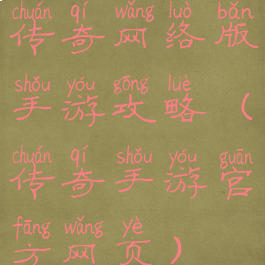 chuán qí wǎng luò bǎn
传奇网络版
shǒu yóu gōng luè
手游攻略（
chuán qí shǒu yóu guān
传奇手游官
fāng wǎng yè
方网页）